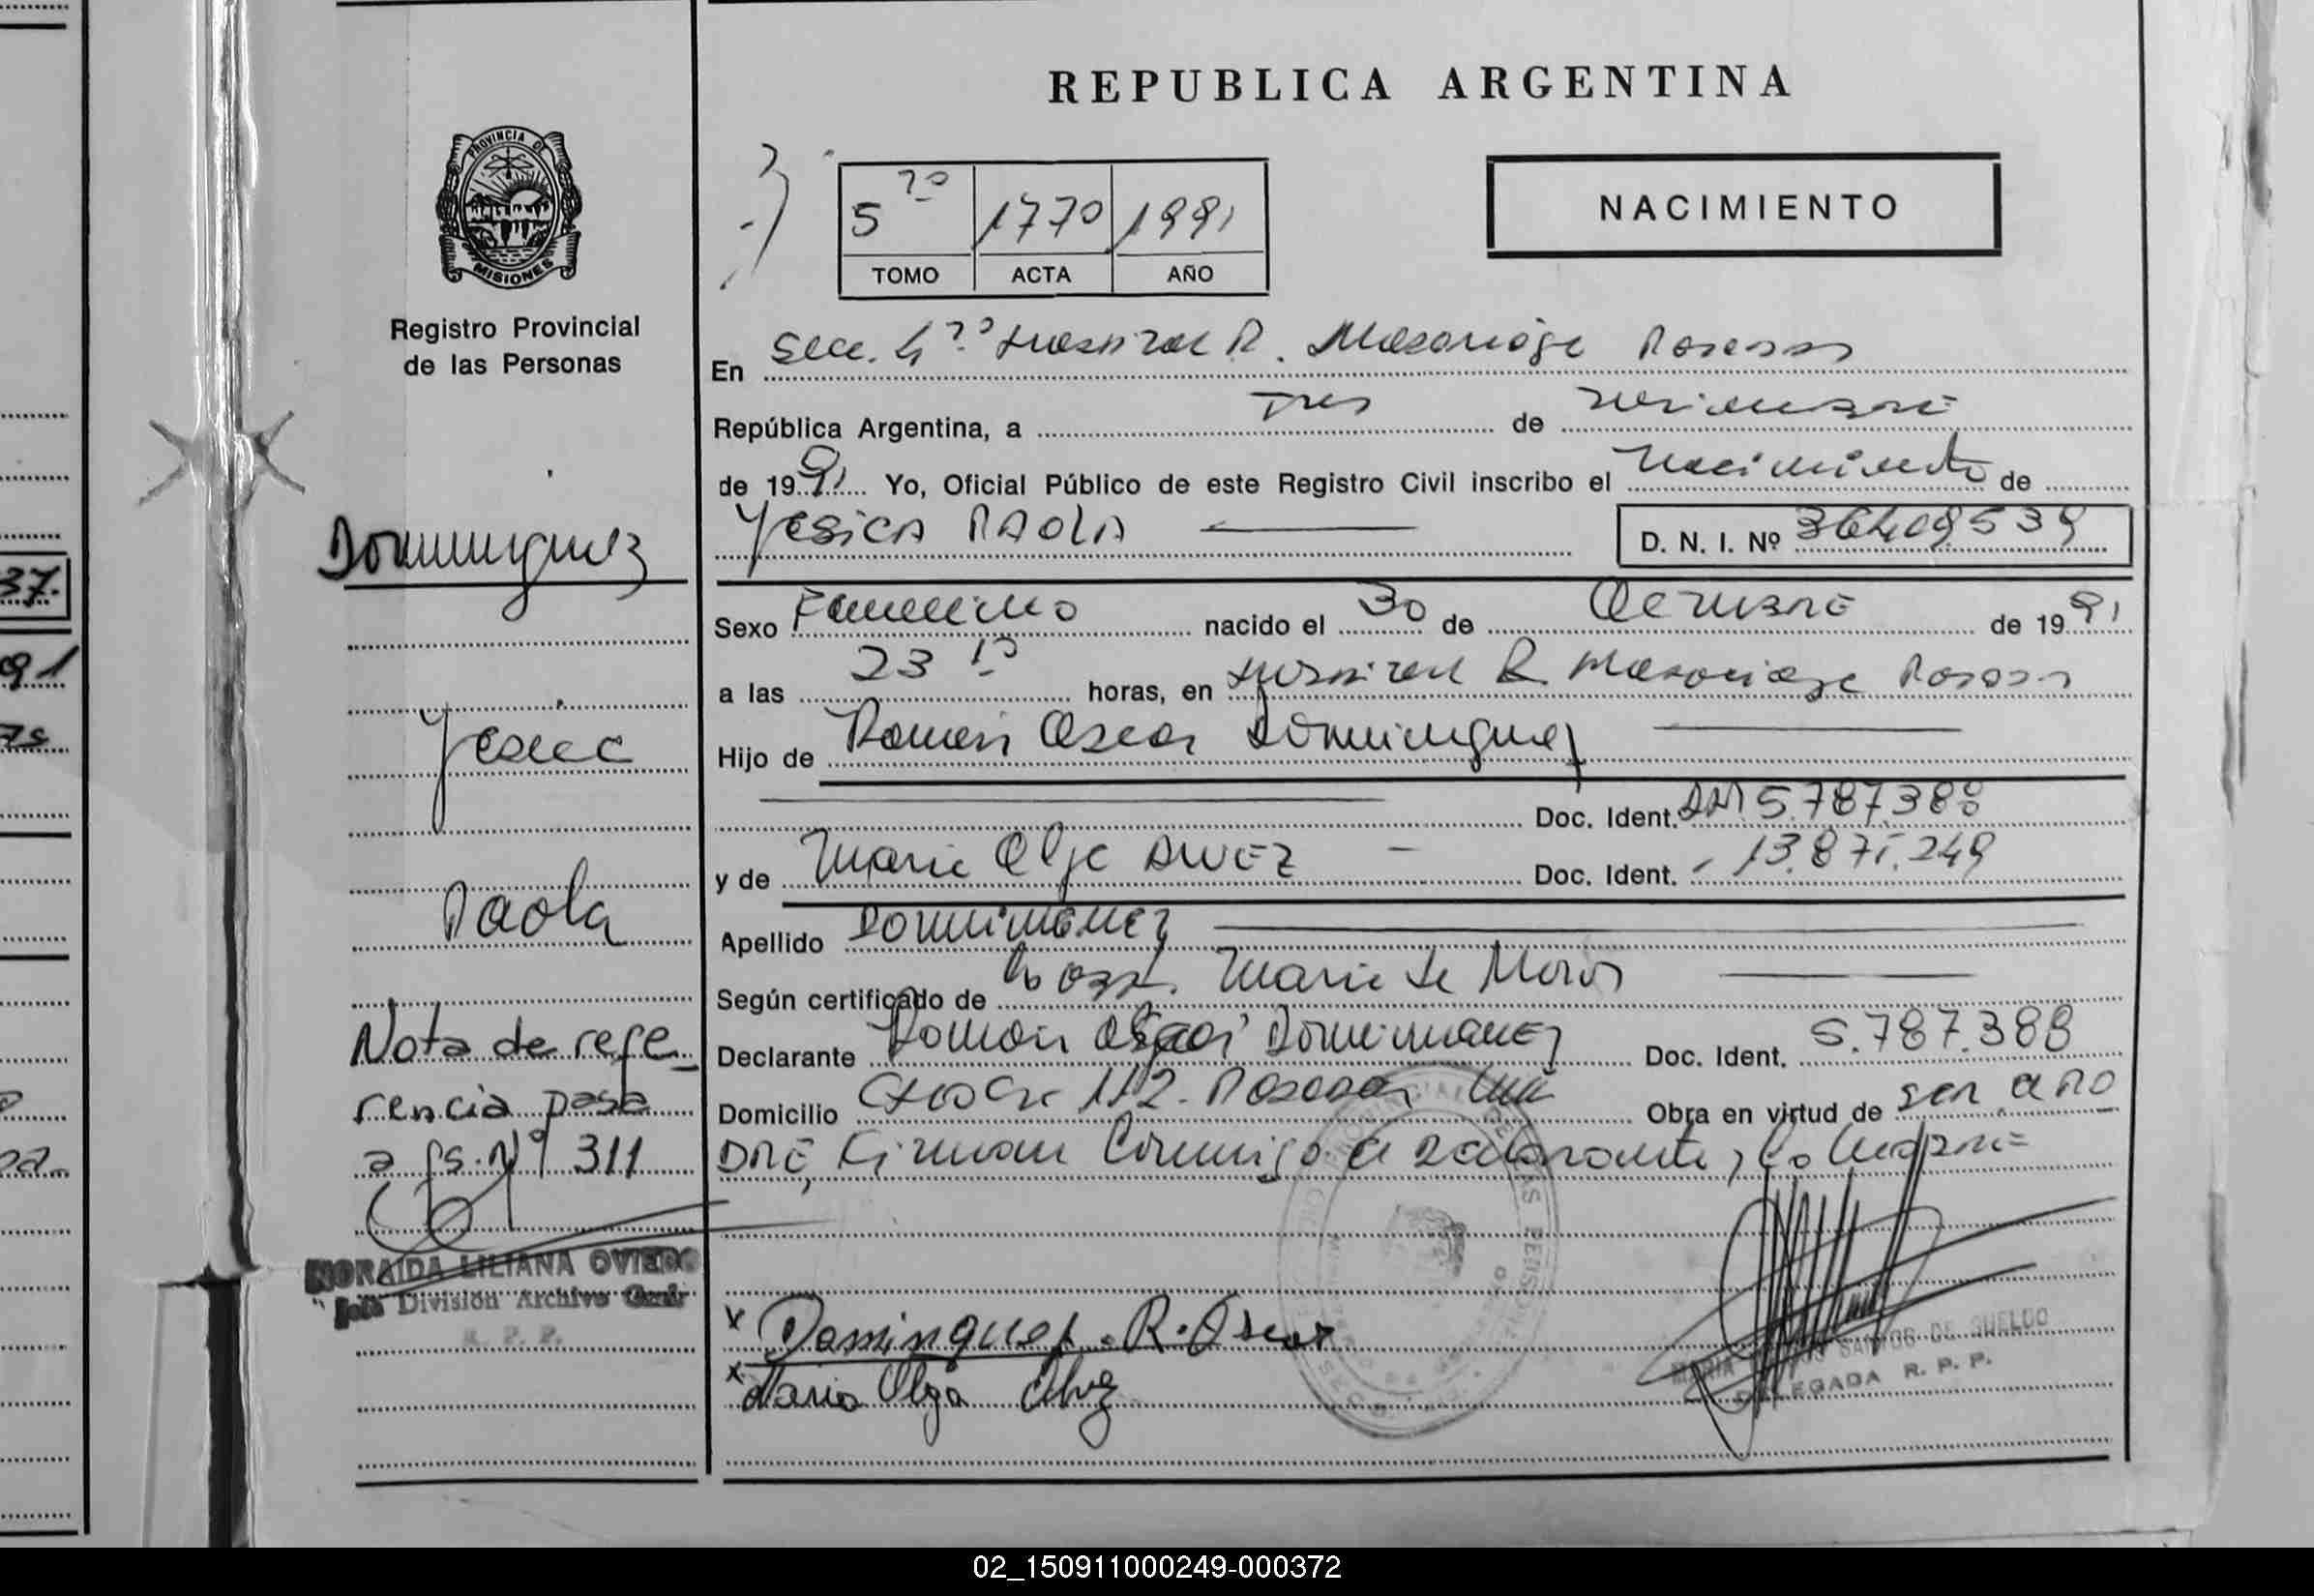 REPUBLICA ARGENTINA
PROVINCIA DE
MISIONES
Registro Provincial
de las Personas
5to 1770 1991
TOMO ACTA AÑO
NACIMIENTO
En Secc. 4ta Hospital R. Madariaga Posadas
República Argentina, a Tres de Noviembre
de 1991 Yo, Oficial Público de este Registro Civil inscribo el Nacimiento de
YESICA PAOLA D. N. I. Nº 36.409.539
Sexo Femenino nacido el 30 de Octubre de 1991
a las 23 10 horas, en Hospital R. Madariaga Posadas
Hijo de Ramón Oscar Dominguez
Doc. Ident. DNI 5.787.388
y de Maria Olga ALVEZ Doc. Ident. 13.871.249
Apellido DOMINGUEZ
Según certificado de Obst. Maria de
Declarante Ramón Oscar DOMINGUEZ Doc. Ident. 5.787.388
Domicilio 112. Posadas Obra en virtud de ser el PA
DRE, Firman Conmigo el declarante, La Madre
Dominguez
Yesica
Paola
Nota de refe_
rencia pasa
a fs. Nº 311
NORAIDA LILIANA OVIEDO
Jefe División Archivo Gral.
R. P. P.
x Dominguez. R. Oscar
x Maria Olga Alvez
MARIA SANTOS DE SUELDO
DELEGADA R. P. P.
37.
91
02_150911000249-000372